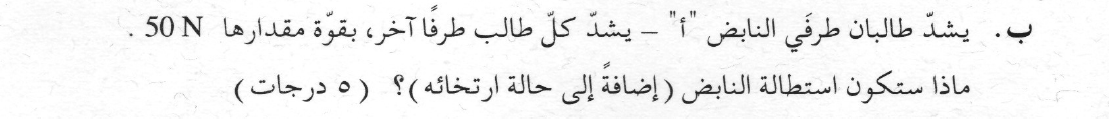 ب. يشدّ طالبان طرفَي النابض "أ" – يشدّ كلّ طالب طرفًا آخر، بقوّة مقدارها 50 N .
ماذا ستكون استطالة النابض (إضافةً إلى حالة ارتخائه)؟ (٥ درجات)